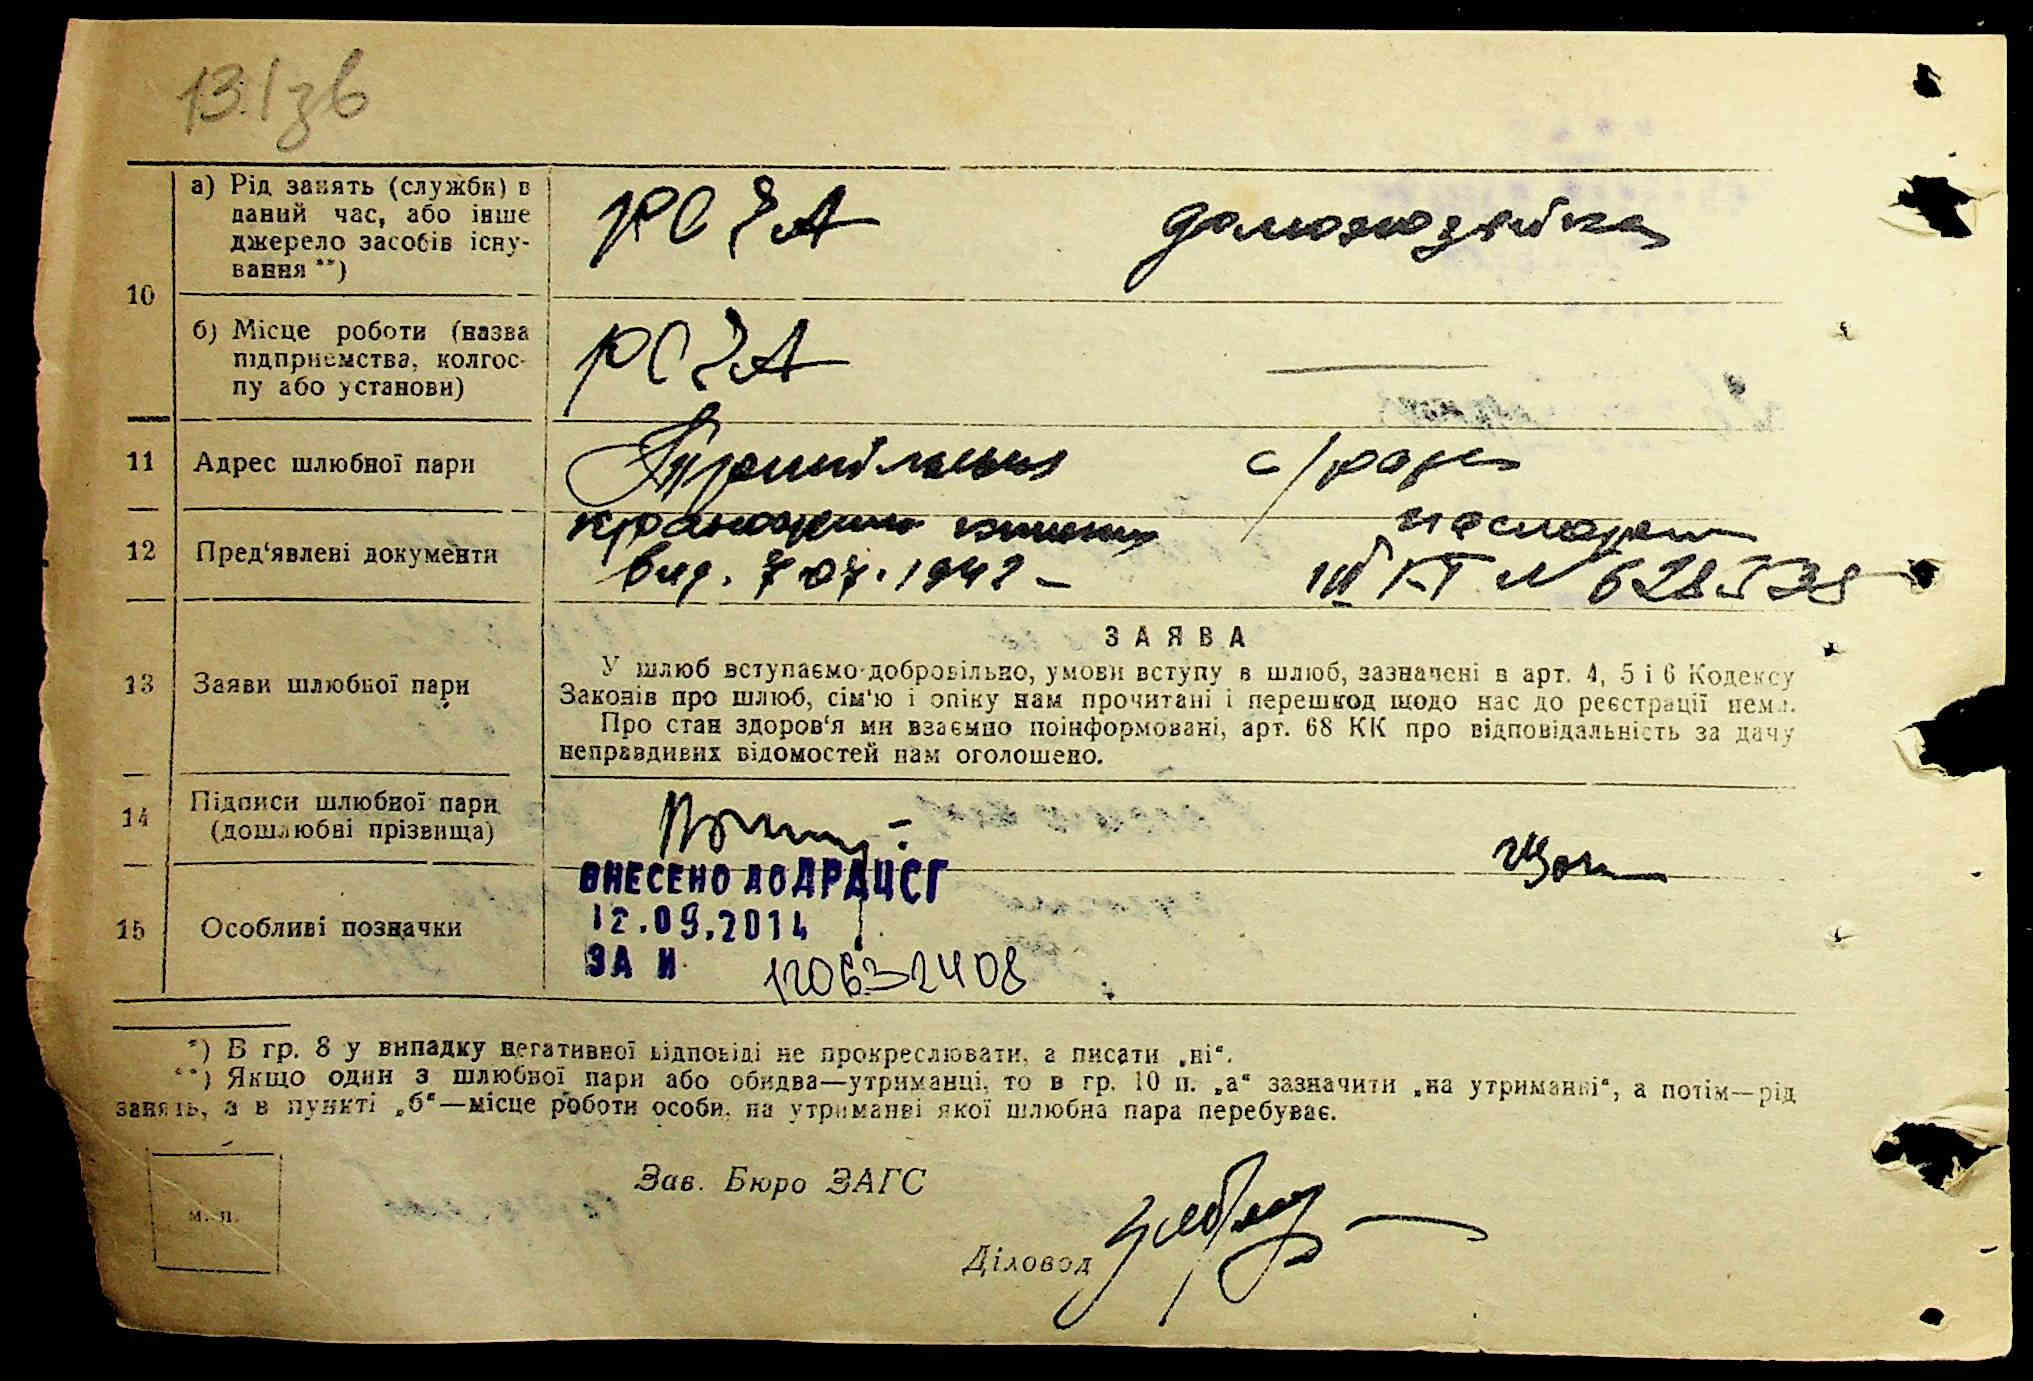 13.Iзв
а) Рід занять (служби) в
даний час, або інше
джерело засобів існу-
вання **)
РСЧА домохозяйка
10
б) Місце роботи (назва
підприємства, колгос-
пу або установи)
РСЧА —
11 Адрес шлюбної пари
с/рада
12 Пред'явлені документи
вид. 7.07.1942 – паспорт
III КТ № 628538
13 Заяви шлюбної пари
ЗАЯВА
У шлюб вступаємо добровільно, умови вступу в шлюб, зазначені в арт. 4, 5 і 6 Кодексу
Законів про шлюб, сім'ю і опіку нам прочитані і перешкод щодо нас до реєстрації нема.
Про стан здоров'я ми взаємно поінформовані, арт. 68 КК про відповідальність за дачу
неправдивих відомостей нам оголошено.
14 Підписи шлюбної пари
(дошлюбні прізвища)
15 Особливі позначки
ВНЕСЕНО ДО ДРАЦСГ
12.09.2014
ЗА N 120632408
*) В гр. 8 у випадку негативної відповіді не прокреслювати, а писати „ні“.
**) Якщо один з шлюбної пари або обидва—утриманці, то в гр. 10 п. „а“ зазначити „на утриманні“, а потім—рід
занять, а в пункті „б“—місце роботи особи, на утриманні якої шлюбна пара перебуває.
м. п.
Зав. Бюро ЗАГС
Діловод